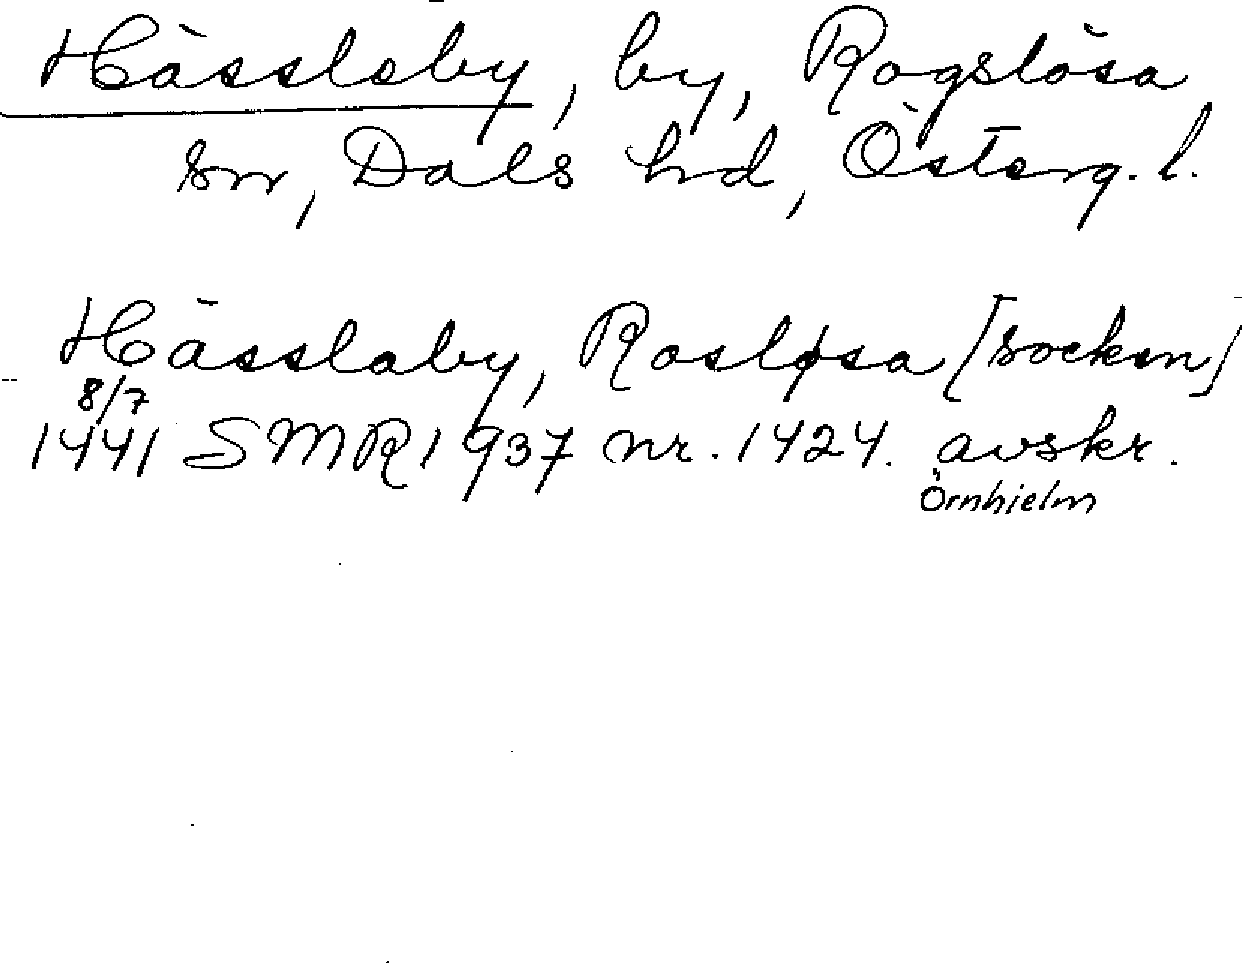 Hässleby, by, Rogslösa
sn, Dals hd, Österg. l.
Hässlaby, Rosløsa [socken]
8/7
1441 SMR 1937 nr. 1424. avskr.
Örnhielm